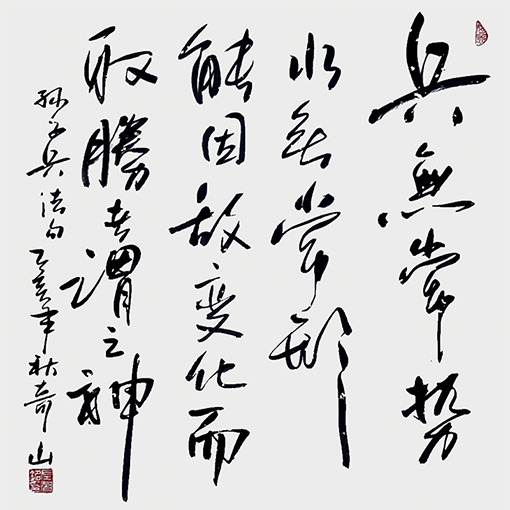 兵無常势
水無常形
能因敌变化而
取勝者謂之神
孙子兵法句 乙亥年秋奇山